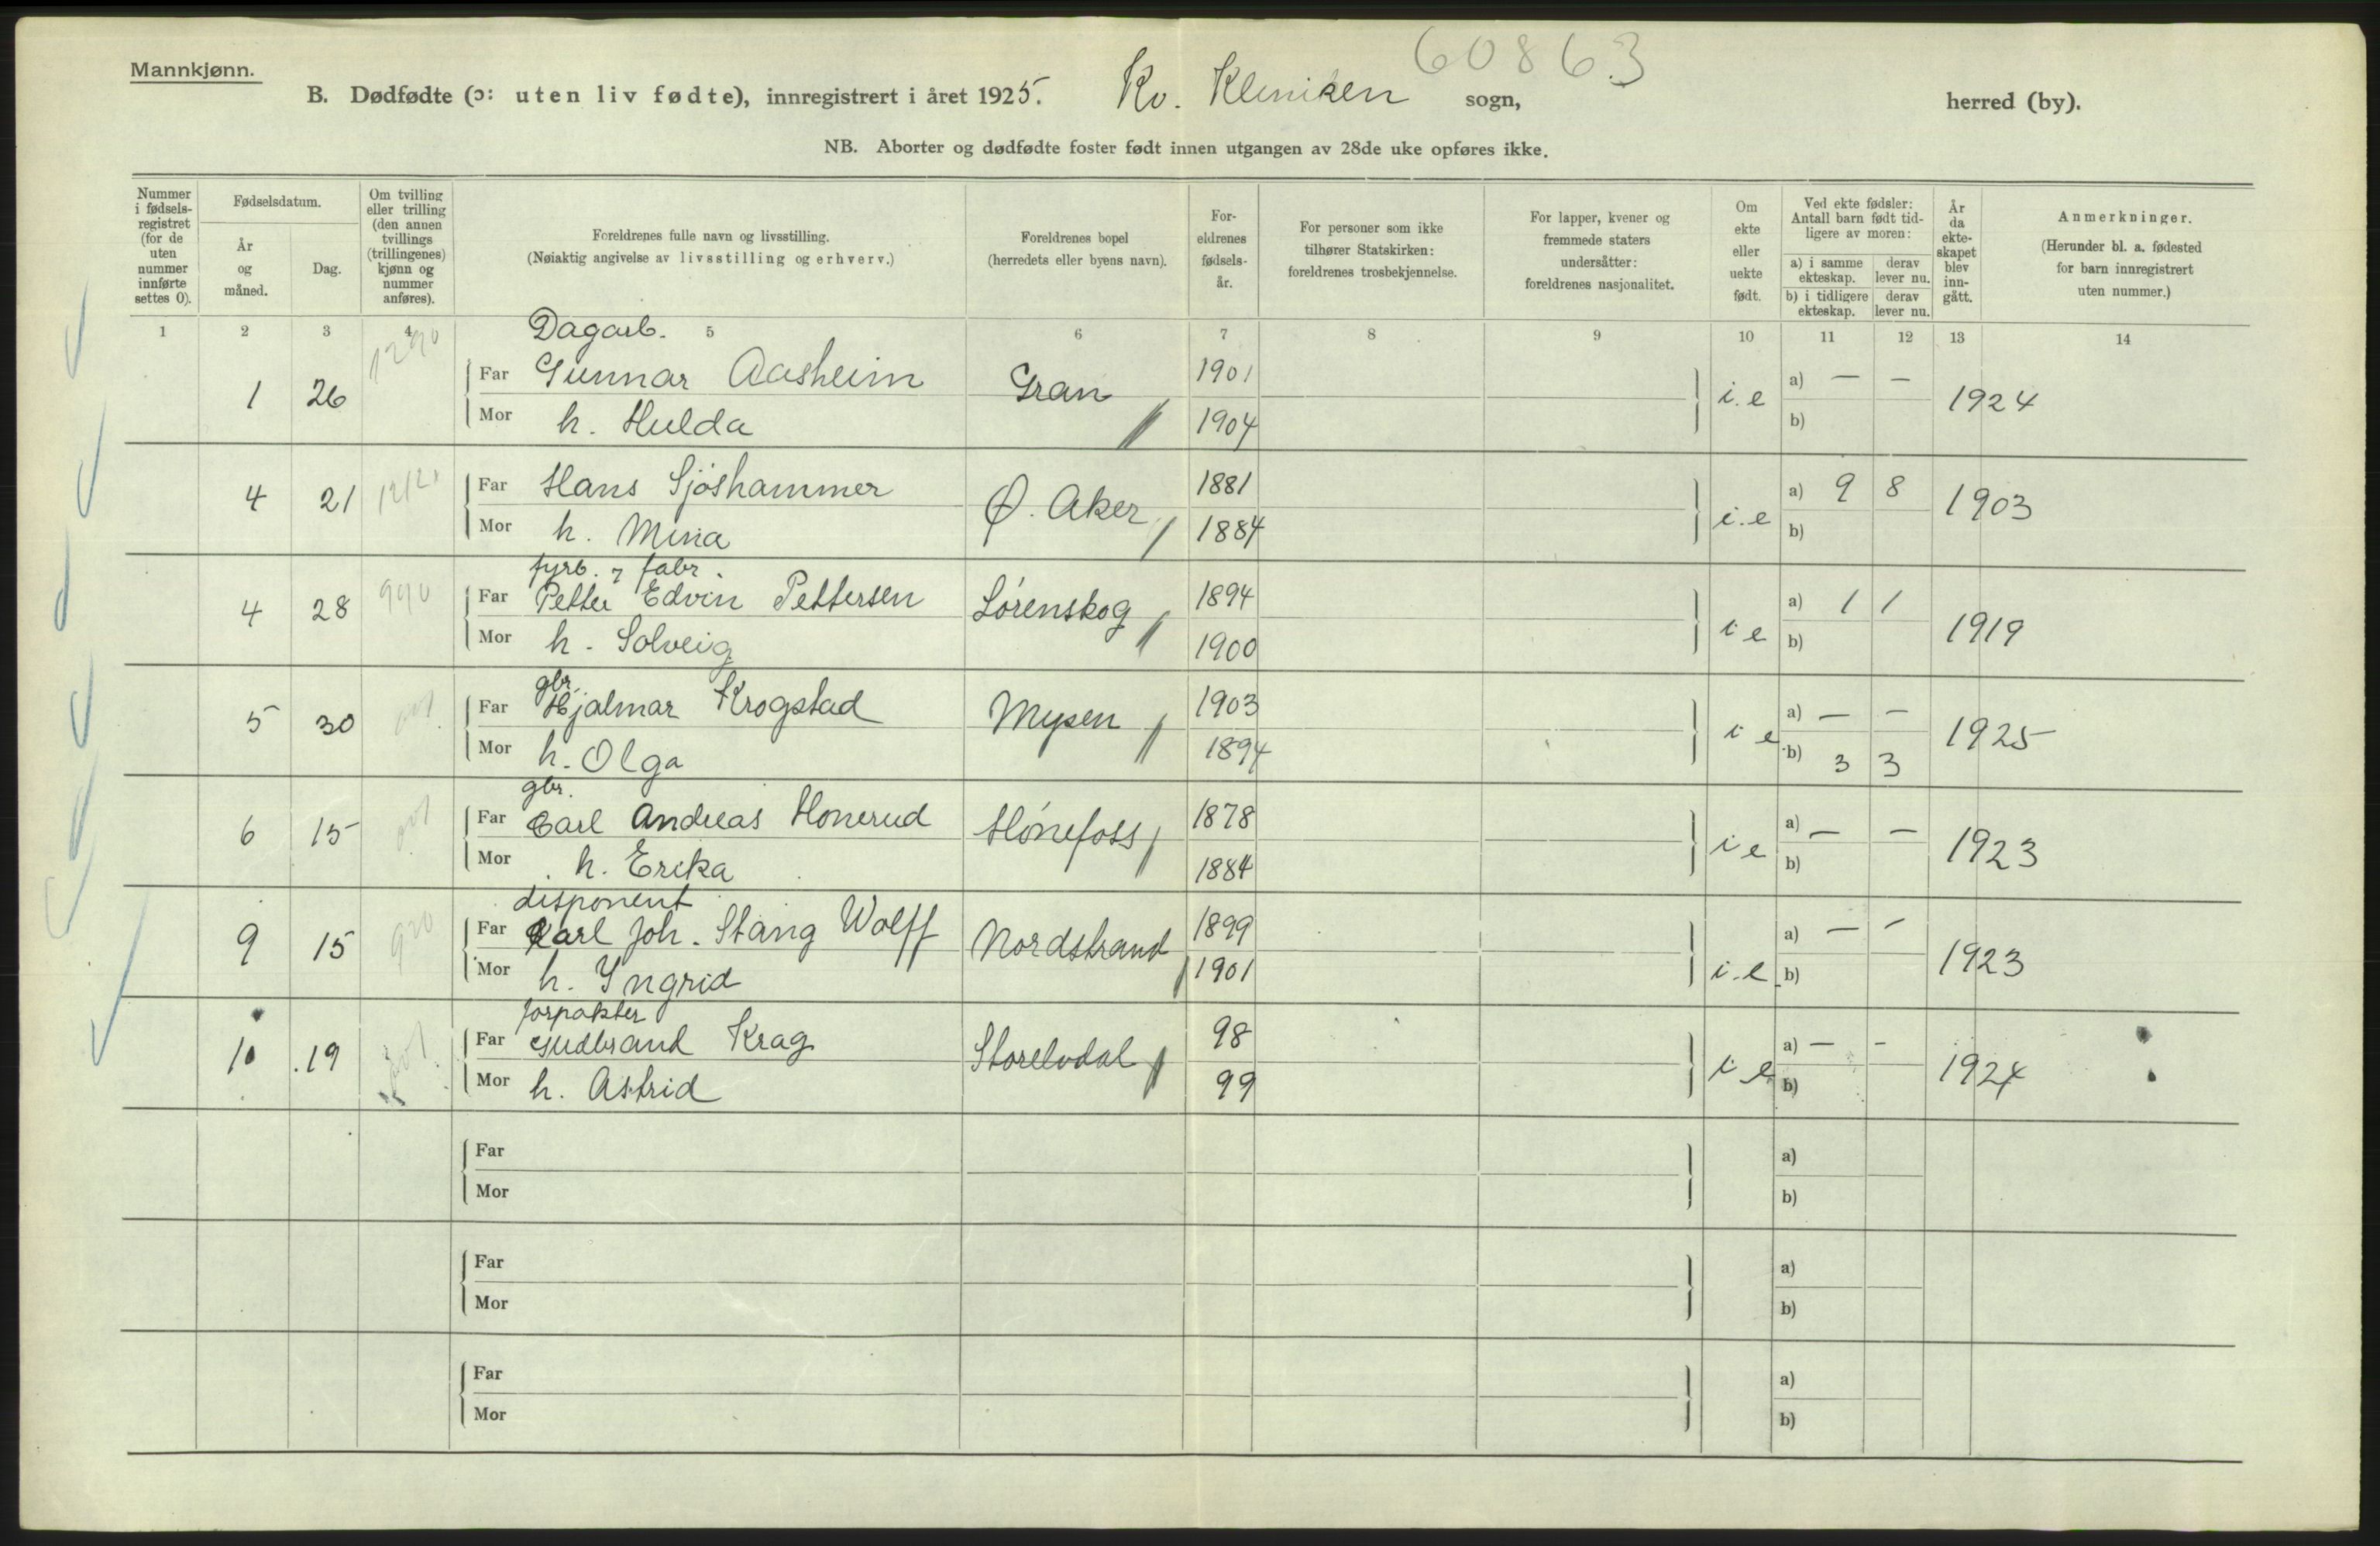 60863
Mannkjønn.
B. Dødfødte (ɔ: uten liv fødte), innregistrert i året 1925. Kv. Kliniken sogn, herred (by).
NB. Aborter og dødfødte foster født innen utgangen av 28de uke opføres ikke.
Nummer i fødselsregistret (for de uten nummer innførte settes 0).
Fødselsdatum.
År og måned.
Dag.
Om tvilling eller trilling (den annen tvillings (trillingenes) kjønn og nummer anføres).
Foreldrenes fulle navn og livsstilling.
(Nøiaktig angivelse av livsstilling og erhverv.)
Foreldrenes bopel
(herredets eller byens navn).
Foreldrenes fødselsår.
For personer som ikke tilhører Statskirken: foreldrenes trosbekjennelse.
For lapper, kvener og fremmede staters undersåtter: foreldrenes nasjonalitet.
Om ekte eller uekte født.
Ved ekte fødsler: Antall barn født tidligere av moren:
a) i samme ekteskap. derav lever nu.
b) i tidligere ekteskap. derav lever nu.
År da ekteskapet blev inngått.
Anmerkninger.
(Herunder bl. a. fødested for barn innregistrert uten nummer.)
1 2 3 4 5 6 7 8 9 10 11 12 13 14
1290
Dagarb.
1 26 Far Gunnar Aasheim Gran 1901 i.e a) — — 1924
Mor h. Hulda 1904 b)
4 21 Far Hans Sjøshammer Ø. Aker 1881 i.e a) 9 8 1903
Mor h. Mina 1884 b)
fyrb. fabr.
4 28 990 Far Petter Edvin Pettersen Lørenskog 1894 i e a) 1 1 1919
Mor h. Solveig 1900 b)
gbr.
5 30 Far Hjalmar Krogstad Mysen 1903 i e a) — — 1925
Mor h. Olga 1894 b) 3 3
gbr.
6 15 Far Carl Andreas Hønerud Hønefoss 1878 i e a) — — 1923
Mor h. Erika 1884 b)
disponent
9 15 920 Far Karl Joh. Stang Wolff Nordstrand 1899 i.e a) — — 1923
Mor h. Yngrid 1901 b)
forpakter
10 19 Far Gudbrand Krag Storelvdal 98 i e a) — — 1924
Mor h. Astrid 99 b)
Far a)
Mor b)
Far a)
Mor b)
Far a)
Mor b)